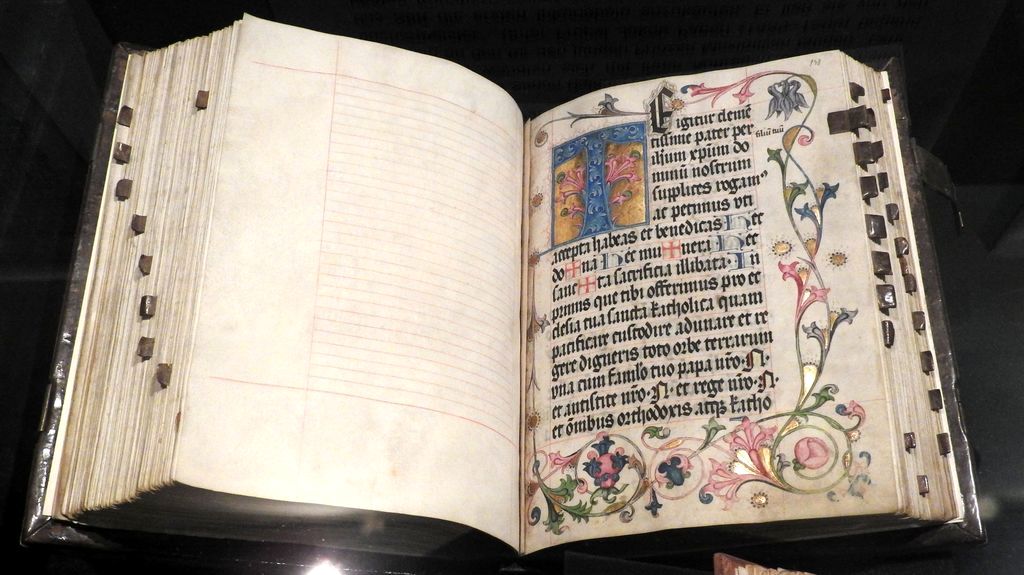 TE igitur clemē
tissime pater per
ihum xpūm do filiū tuū
minū nostrum
supplices rogam⁹
ac petimus vti
accepta habeas et benedicas Hec
do✠na Hec mu✠nera Hec
sanc✠ta sacrificia illibata. In
primis que tibi offerimus pro ec
clesia tua sancta katholica quam
pacificare custodire adunare et re
gere digneris toto orbe terrarum
vna cum famlo tuo papa nr̄o ·N·
et antistite nr̄o ·N· et rege nr̄o ·N·
et om̄ibus orthodoxis atqꝫ katho